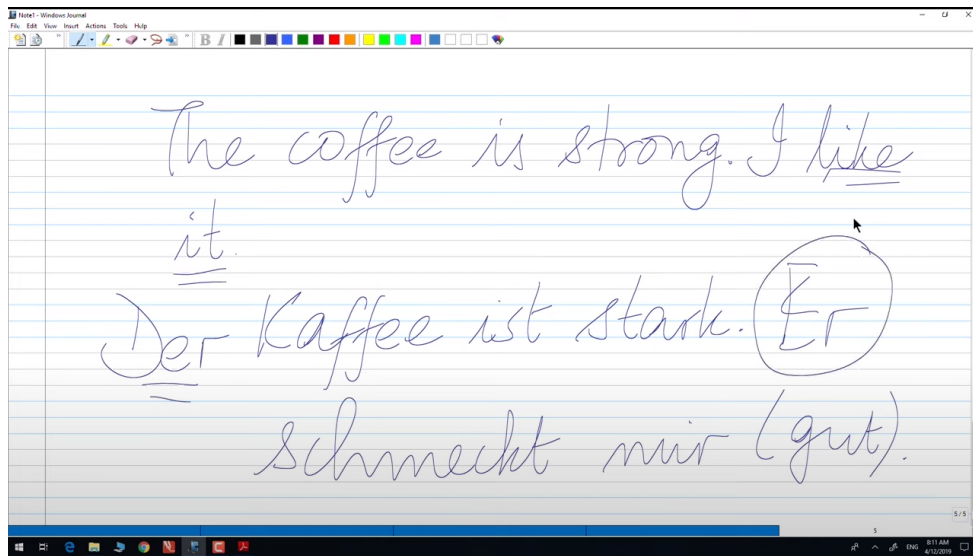 Note1 - Windows Journal
File Edit View Insert Actions Tools Help
B I
The coffee is strong. I like
it.
Der Kaffee ist stark. Er
schmeckt mir (gut).
5 / 5
5
ENG 8:11 AM
4/12/2019